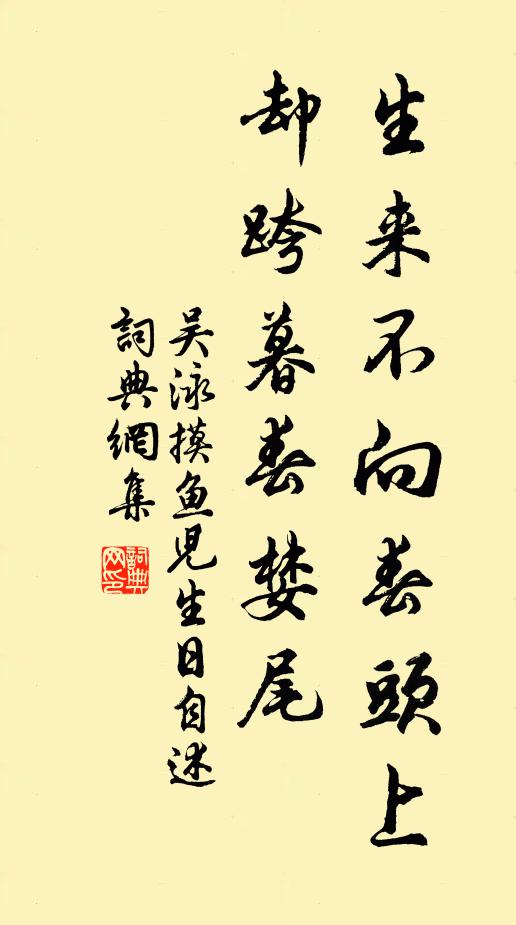 生来不向春頭上
却跨暮春婪尾
吴泳摸鱼児生日自述
詞典網集
詞典网印